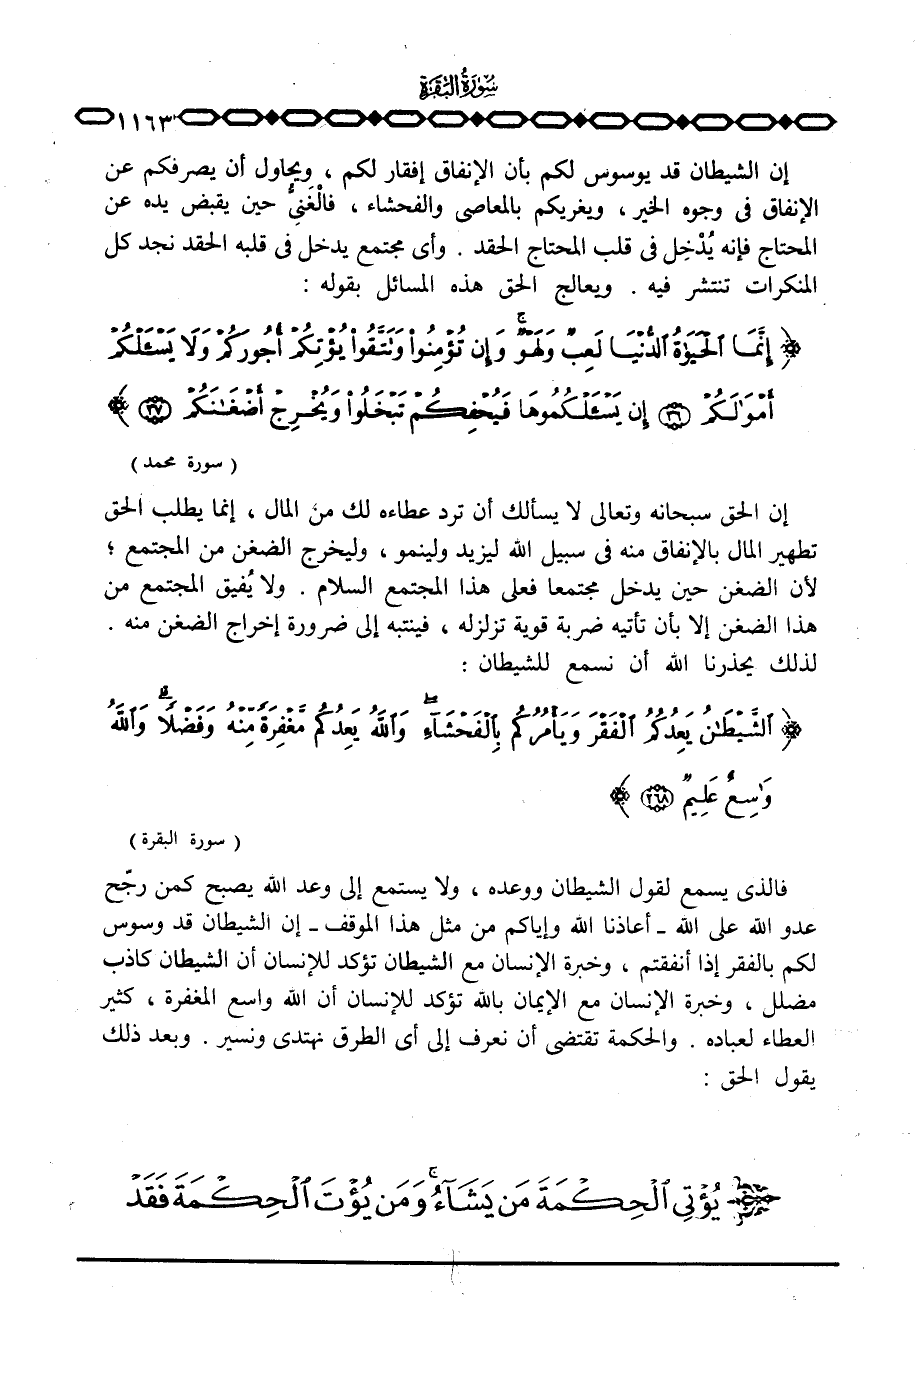 سُورَةُ البَقَرَةِ
١١٦٣
إن الشيطان قد يوسوس لكم بأن الإنفاق إفقار لكم ، ويحاول أن يصرفكم عن
الإنفاق فى وجوه الخير ، ويغريكم بالمعاصى والفحشاء ، فالْغَنِيُّ حين يقبض يده عن
المحتاج فإنه يُدْخِل فى قلب المحتاج الحقد . وأى مجتمع يدخل فى قلبه الحقد نجد كل
المنكرات تنتشر فيه . ويعالج الحق هذه المسائل بقوله :
﴿ إِنَّمَا ٱلْحَيَوٰةُ ٱلدُّنْيَا لَعِبٌ وَلَهْوٌ ۚ وَإِن تُؤْمِنُوا۟ وَتَتَّقُوا۟ يُؤْتِكُمْ أُجُورَكُمْ وَلَا يَسْـَٔلْكُمْ
أَمْوَٰلَكُمْ ۝٣٦ إِن يَسْـَٔلْكُمُوهَا فَيُحْفِكُمْ تَبْخَلُوا۟ وَيُخْرِجْ أَضْغَـٰنَكُمْ ۝٣٧ ﴾
( سورة محمد )
إن الحق سبحانه وتعالى لا يسألك أن ترد عطاءه لك من المال ، إنما يطلب الحق
تطهير المال بالإنفاق منه فى سبيل الله ليزيد ولينمو ، وليخرج الضغن من المجتمع ؛
لأن الضغن حين يدخل مجتمعا فعلى هذا المجتمع السلام . ولا يُفيق المجتمع من
هذا الضغن إلا بأن تأتيه ضربة قوية تزلزله ، فينتبه إلى ضرورة إخراج الضغن منه .
لذلك يحذرنا الله أن نسمع للشيطان :
﴿ ٱلشَّيْطَـٰنُ يَعِدُكُمُ ٱلْفَقْرَ وَيَأْمُرُكُم بِٱلْفَحْشَآءِ ۖ وَٱللَّهُ يَعِدُكُم مَّغْفِرَةً مِّنْهُ وَفَضْلًا ۗ وَٱللَّهُ
وَٰسِعٌ عَلِيمٌ ۝٢٦٨ ﴾
( سورة البقرة )
فالذى يسمع لقول الشيطان ووعده ، ولا يستمع إلى وعد الله يصبح كمن رجّح
عدو الله على الله ـ أعاذنا الله وإياكم من مثل هذا الموقف ـ إن الشيطان قد وسوس
لكم بالفقر إذا أنفقتم ، وخبرة الإنسان مع الشيطان تؤكد للإنسان أن الشيطان كاذب
مضلل ، وخبرة الإنسان مع الإيمان بالله تؤكد للإنسان أن الله واسع المغفرة ، كثير
العطاء لعباده . والحكمة تقتضى أن نعرف إلى أى الطرق نهتدى ونسير . وبعد ذلك
يقول الحق :
يُؤْتِى ٱلْحِكْمَةَ مَن يَشَآءُ ۚ وَمَن يُؤْتَ ٱلْحِكْمَةَ فَقَدْ